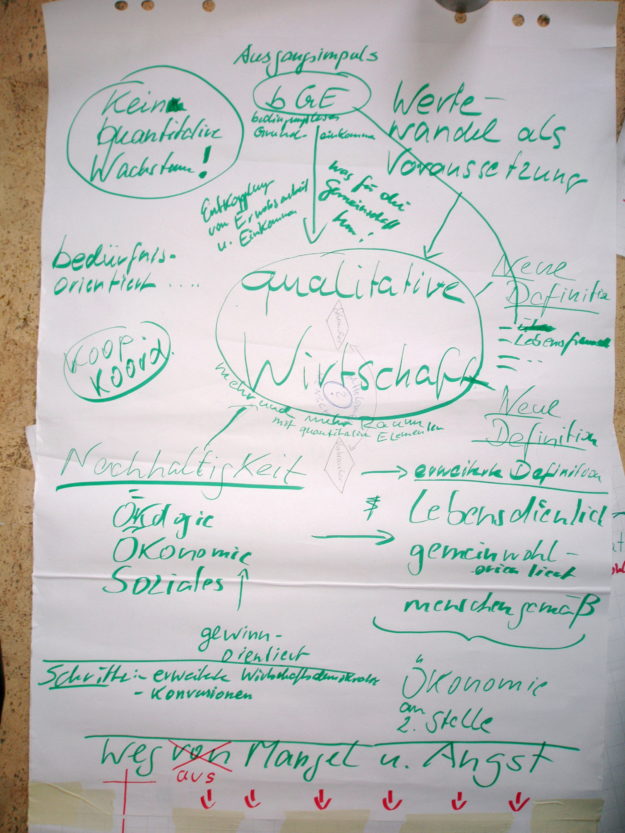 Ausgangsimpuls
bGE
bedingungsloses
Grund- einkommen
Kein
quantitative
Wachstum!
Werte-
wandel als
Voraussetzung
Entkopplung
von Erwerbsarbeit
u. Einkommen
was für die
Gemeinschaft
tun!
bedürfnis-
orientiert ....
qualitative
Wirtschaft
Neue
Definition
- Lebensfreude
- ..
KOOP
KOORD.
mehr und mehr Raum
mit quantitativen Elementen
Neue
Definition
Nachhaltigkeit
→ erweiterte Definition
Ökologie
Ökonomie
Soziales
Lebensdienlich
gemeinwohl-
orientiert
menschengemäß
gewinn-
orientiert
Schritte: - erweiterte Wirtschaftsdemokratie
- Konversionen
Ökonomie
an
2. Stelle
Weg von Mangel u. Angst
aus